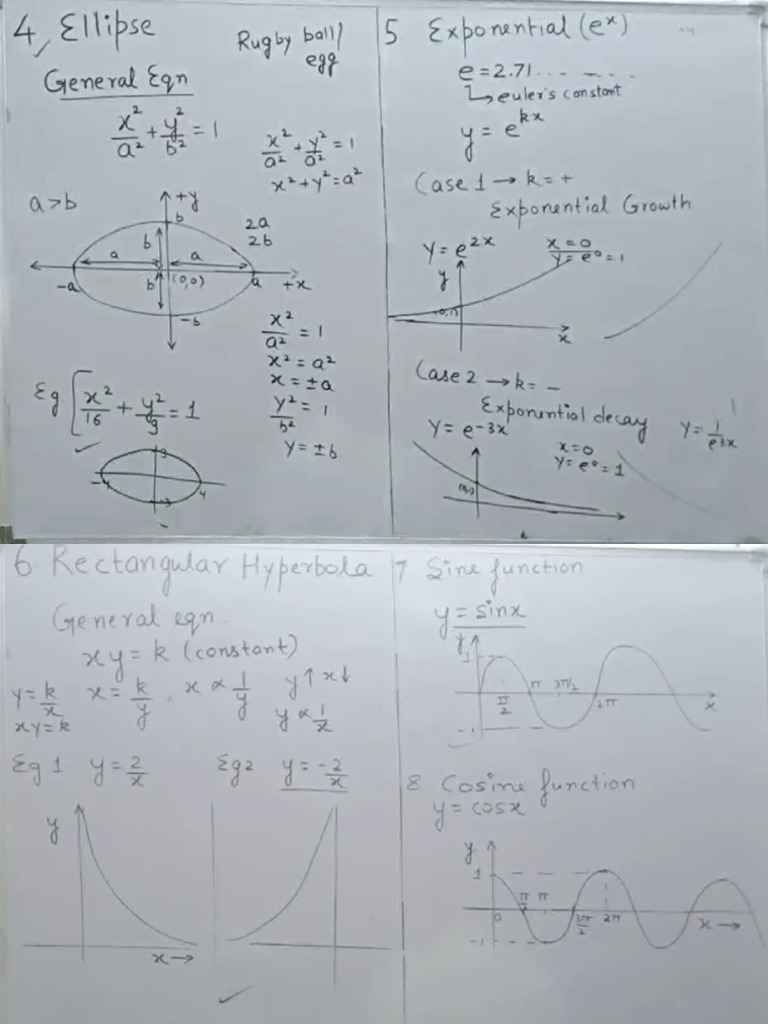 4, Ellipse
Rugby ball/
egg
General Eqn
x²/a² + y²/b² = 1
x²/a² + y²/a² = 1
x² + y² = a²
a > b
+y
b
2a
2b
b
a
a
-a
b
(0,0)
a
+x
-b
x²/a² = 1
x² = a²
x = ±a
y²/b² = 1
y = ±b
Eg x²/16 + y²/9 = 1
3
-4
4
-3
5 Exponential (eˣ)
e = 2.71.... - - - -
↳ euler's constant
y = e^kx
Case 1 → k = +
Exponential Growth
y = e^2x
x = 0
y = e⁰ = 1
y
x
Case 2 → k = -
Exponential decay
y = e^-3x
y = 1/e^3x
x = 0
y = e⁰ = 1
6 Rectangular Hyperbola
General eqn.
xy = k (constant)
y = k/x
x = k/y , x ∝ 1/y
y↑ x↓
xy = k
y ∝ 1/x
Eg 1 y = 2/x
Eg 2 y = -2/x
y
x →
7 Sine function
y = sinx
y
1
π/2
π
3π/2
2π
x
-1
8 Cosine function
y = cosx
y
1
0
π/2
π
3π/2
2π
x →
-1